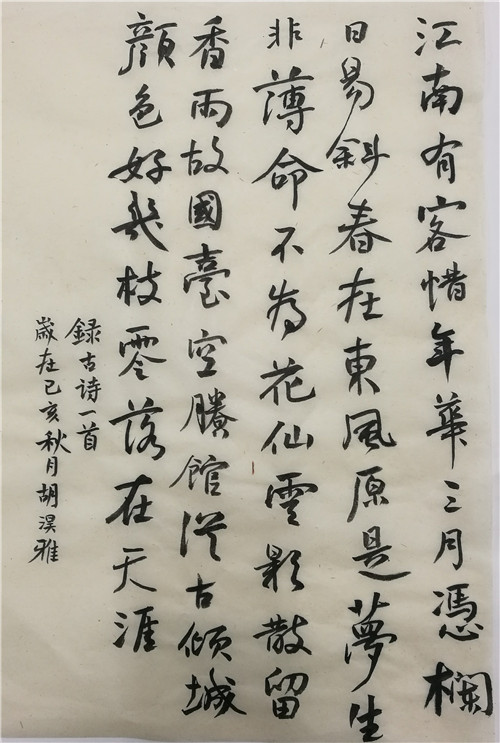 江南有客惜年華三月憑欄
日易斜春在東風原是夢生
非薄命不為花仙雲影散留
香雨故國臺空賸館從古傾城
顏色好幾枝零落在天涯
録古诗一首
歲在己亥秋月胡淏雅